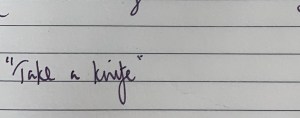 "Take a knife"